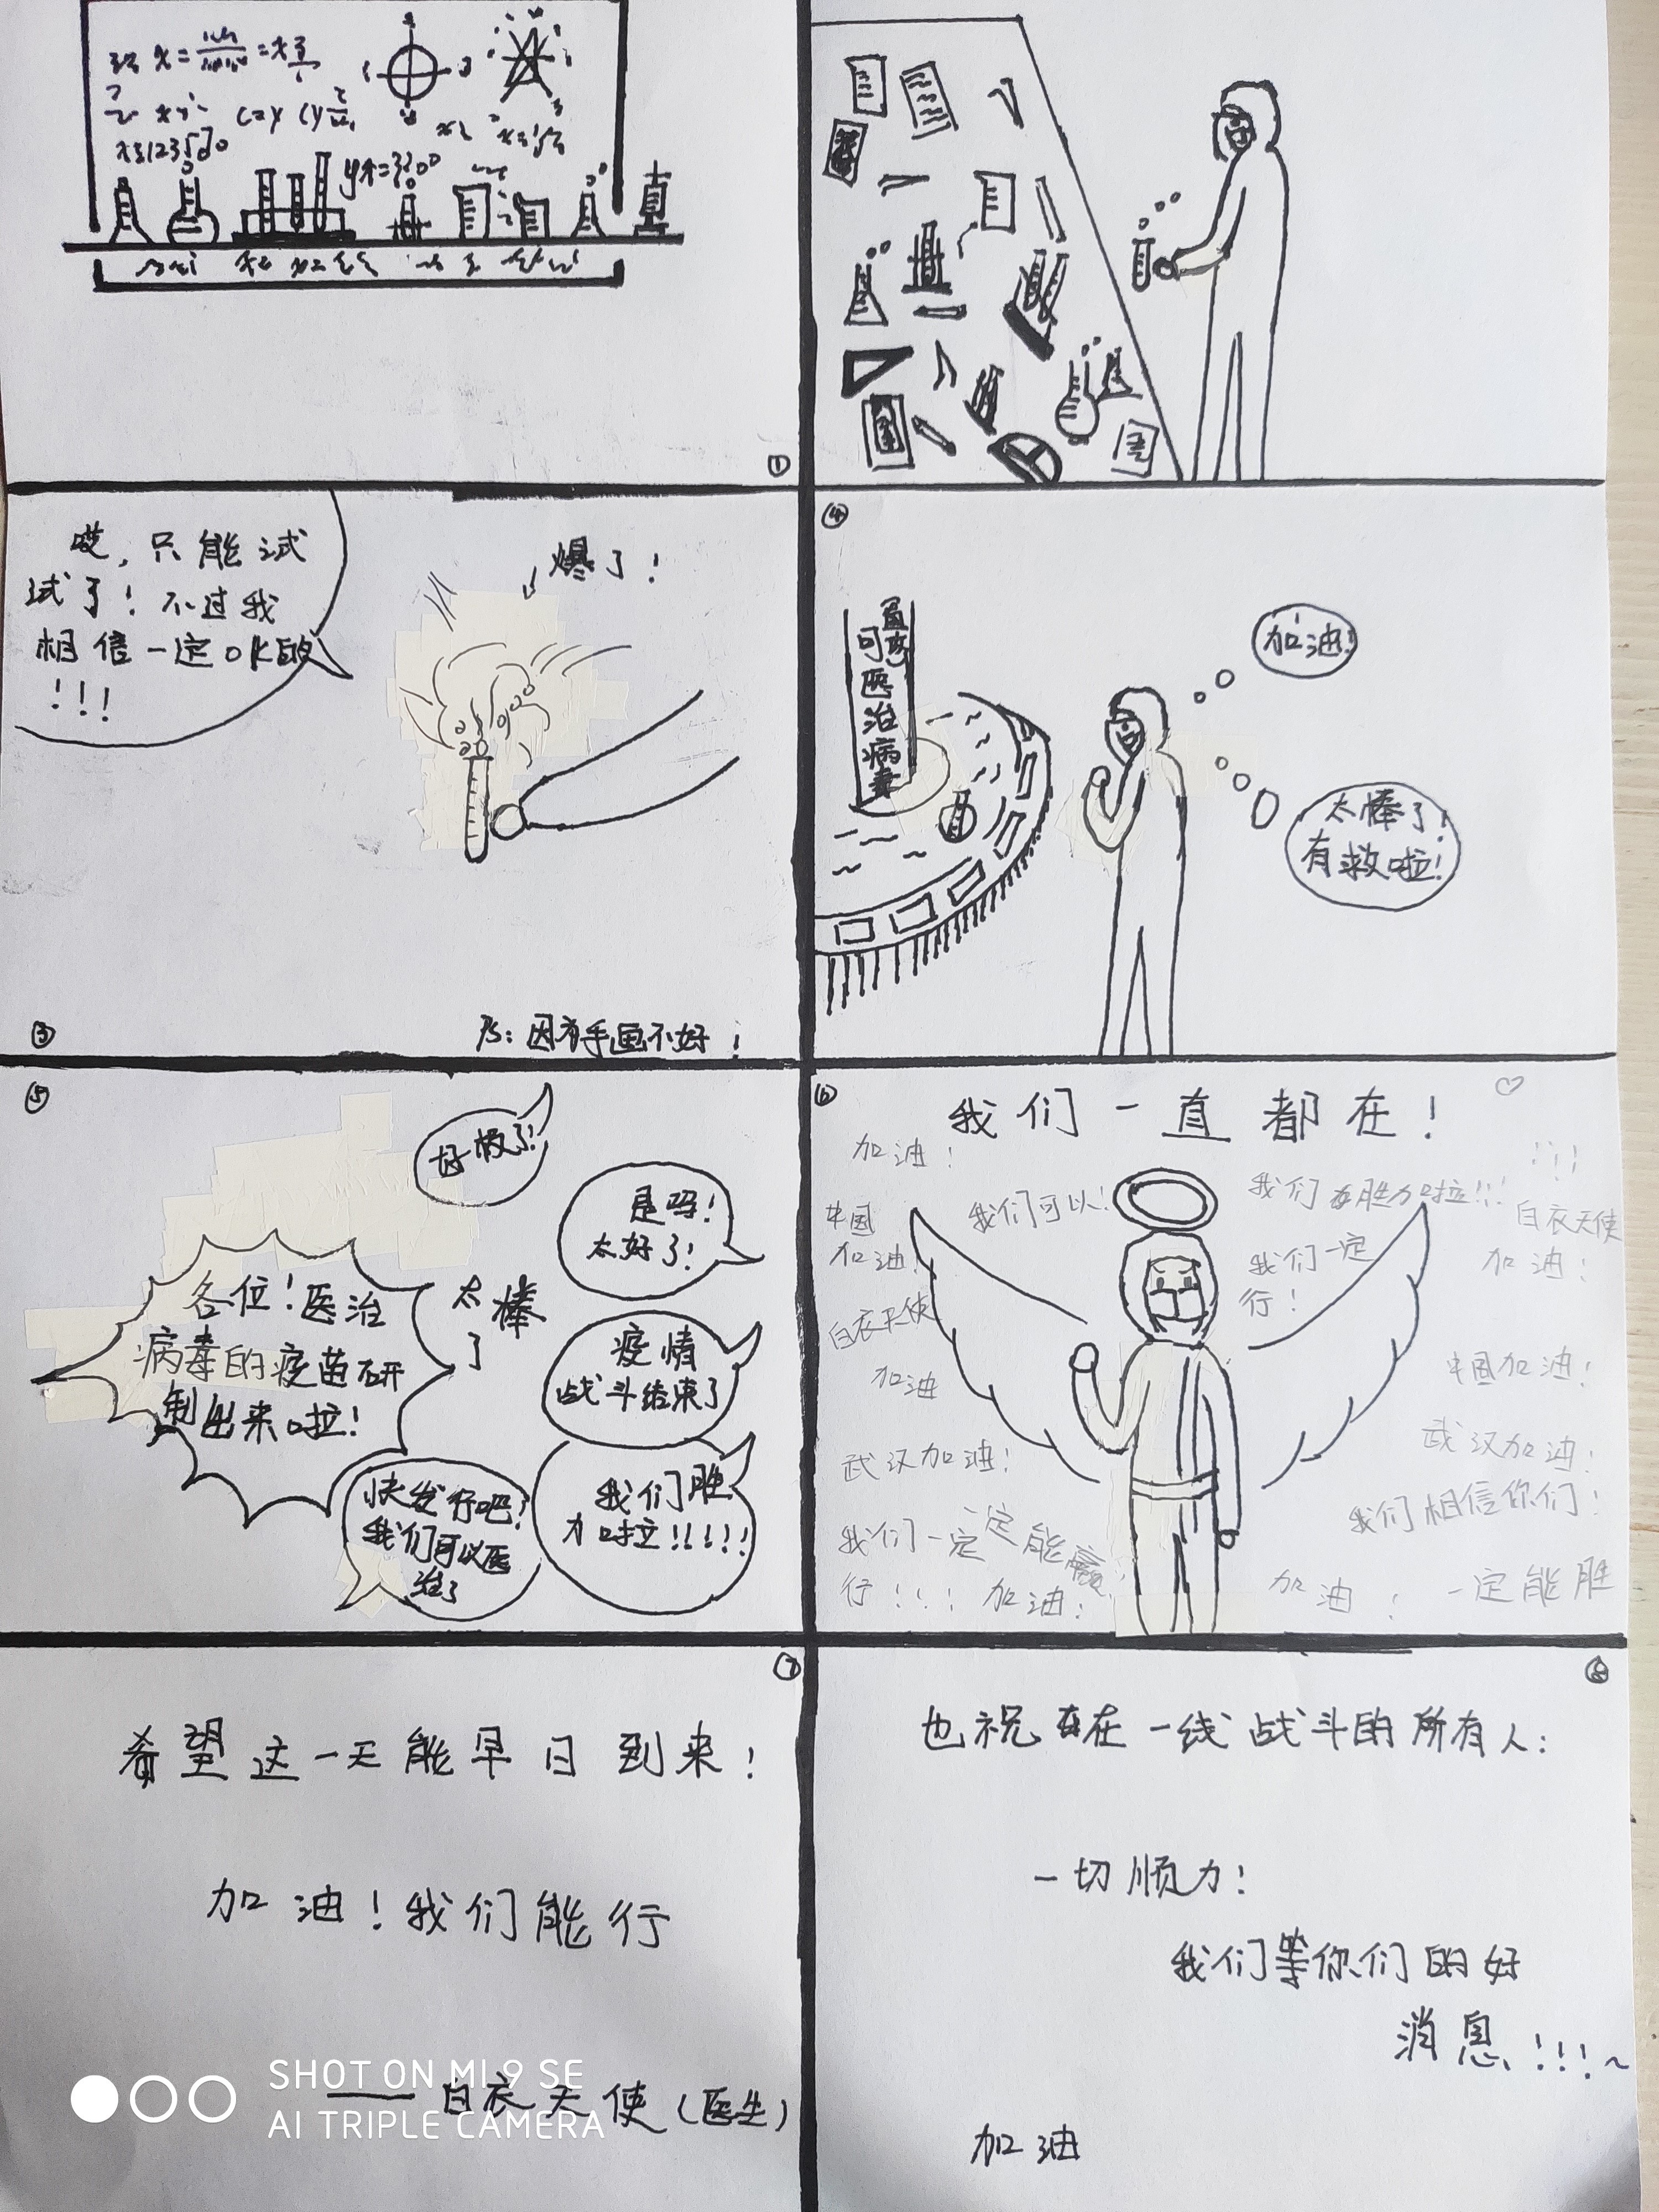 ①
哎，只能试
试了！不过我
相信一定OK的
！！！
爆了！
③
PS：因有手画不好！
④
可医治病毒
加油！
太棒了！
有救啦！
⑤
好极了！
是吗！
太好了！
各位！医治
病毒的疫苗研
制出来啦！
太棒
了
疫情
战斗结束了
快发行吧！
我们可以医
治了
我们胜
力啦！！！！！
⑥
我们一直都在！
加油！
我们可以！
中国
加油！
白衣天使
加油
武汉加油！
我们一定一定能赢
行！！！加油！
我们胜力啦！！！
！！！
白衣天使
加油！
我们一定
行！
中国加油！
武汉加油！
我们相信你们！
加油！一定能胜
⑦
希望这一天能早日到来！
加油！我们能行
——白衣天使（医生）
SHOT ON MI 9 SE
AI TRIPLE CAMERA
⑧
也祝在一线战斗的所有人：
一切顺力！
我们等你们的好
消息！！！~
加油